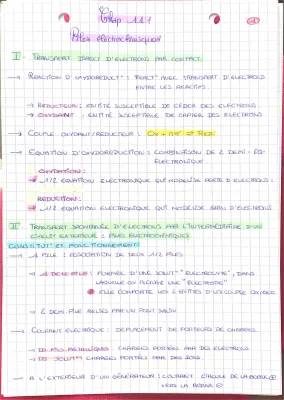 Chap 11.1
Piles électrochimiques
I - TRANSFERT DIRECT D'ELECTRONS PAR CONTACT.
→ REACTION D'OXYDOREDUCT° : REACT° AVEC TRANSFERT D'ELECTRONS
ENTRE LES REACTIFS.
→ REDUCTEUR : ENTITE SUSCEPTIBLE DE CEDER DES ELECTRONS
→ OXYDANT : ENTITE SUSCEPTIBLE DE CAPTER DES ELECTRONS
→ COUPLE OXYDANT/REDUCTEUR : OX + ne- = Red
→ EQUATION D'OXYDOREDUCTION : COMBINAISON DE 2 DEMI-EQ°
ELECTRONIQUE
OXYDATION :
→ 1/2 EQUATION ELECTRONIQUE QUI MODELISE PERTE D'ELECTRONS :
REDUCTION :
→ 1/2 EQUATION ELECTRONIQUE QUI MODELISE GAIN D'ELECTRONS
II - TRANSFERT SPONTANEE D'ELECTRONS PAR L'INTERMEDIAIRE D'UN
CIRCUIT EXTERIEUR : PILES ELECTROCHIMIQUES.
CONSTITUT° ET FONCTIONNEMENT :
→ 1 PILE : ASSOCIATION DE DEUX 1/2 PILES
→ 1 DEMI PILE : D'UNE SOLUT° "ELECTROLYTE", DANS
LAQUELLE ON PLONGE UNE "ELECTRODE"
ELLE COMPORTE LES 2 ENTITES D'UN COUPLE OX/RED
→ 2 DEMI PILE RELIES PAR UN PONT SALIN
→ COURANT ELECTRIQUE : DEPLACEMENT DE PORTEURS DE CHARGES.
→ METALLIQUES : CHARGES PORTEES PAR DES ELECTRONS
→ SOLUT° : CHARGES PORTEES PAR DES IONS.
→ A L'EXTERIEUR D'UN GENERATEUR : COURANT CIRCULE DE LA BORNE ⊕
VERS LA BORNE ⊖